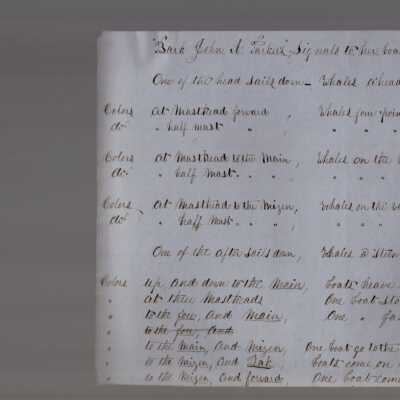 "Bark John A. Parker", Signals to her boa
One of the head sails down – Whales ahead
Colors at Masthead forward , Whales four poin
do. " half mast " , " "
Colors at Masthead to the Main , Whales on the
do. " half Mast . " " , " " "
Colors at Masthead to the Mizen, Whales on the
do. " half Mast . " " , " " "
One of the after sails down, Whales a Stern
Colors up, and down to the Main, boats heave
" At three Mastheads One boat sto
" to the fore, and Main, One " fa
" to the fore, and
" to the Main, And Mizen, One boat go to the
" to the Mizen, And Peak, boats come on
" to the Mizen, And forward One boat come